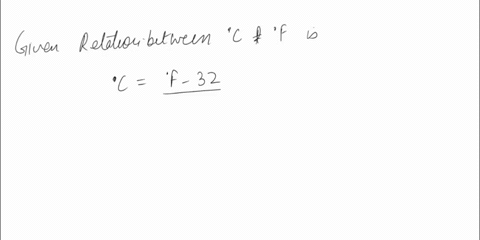 Given Relation between °C & °F is
°C = °F - 32